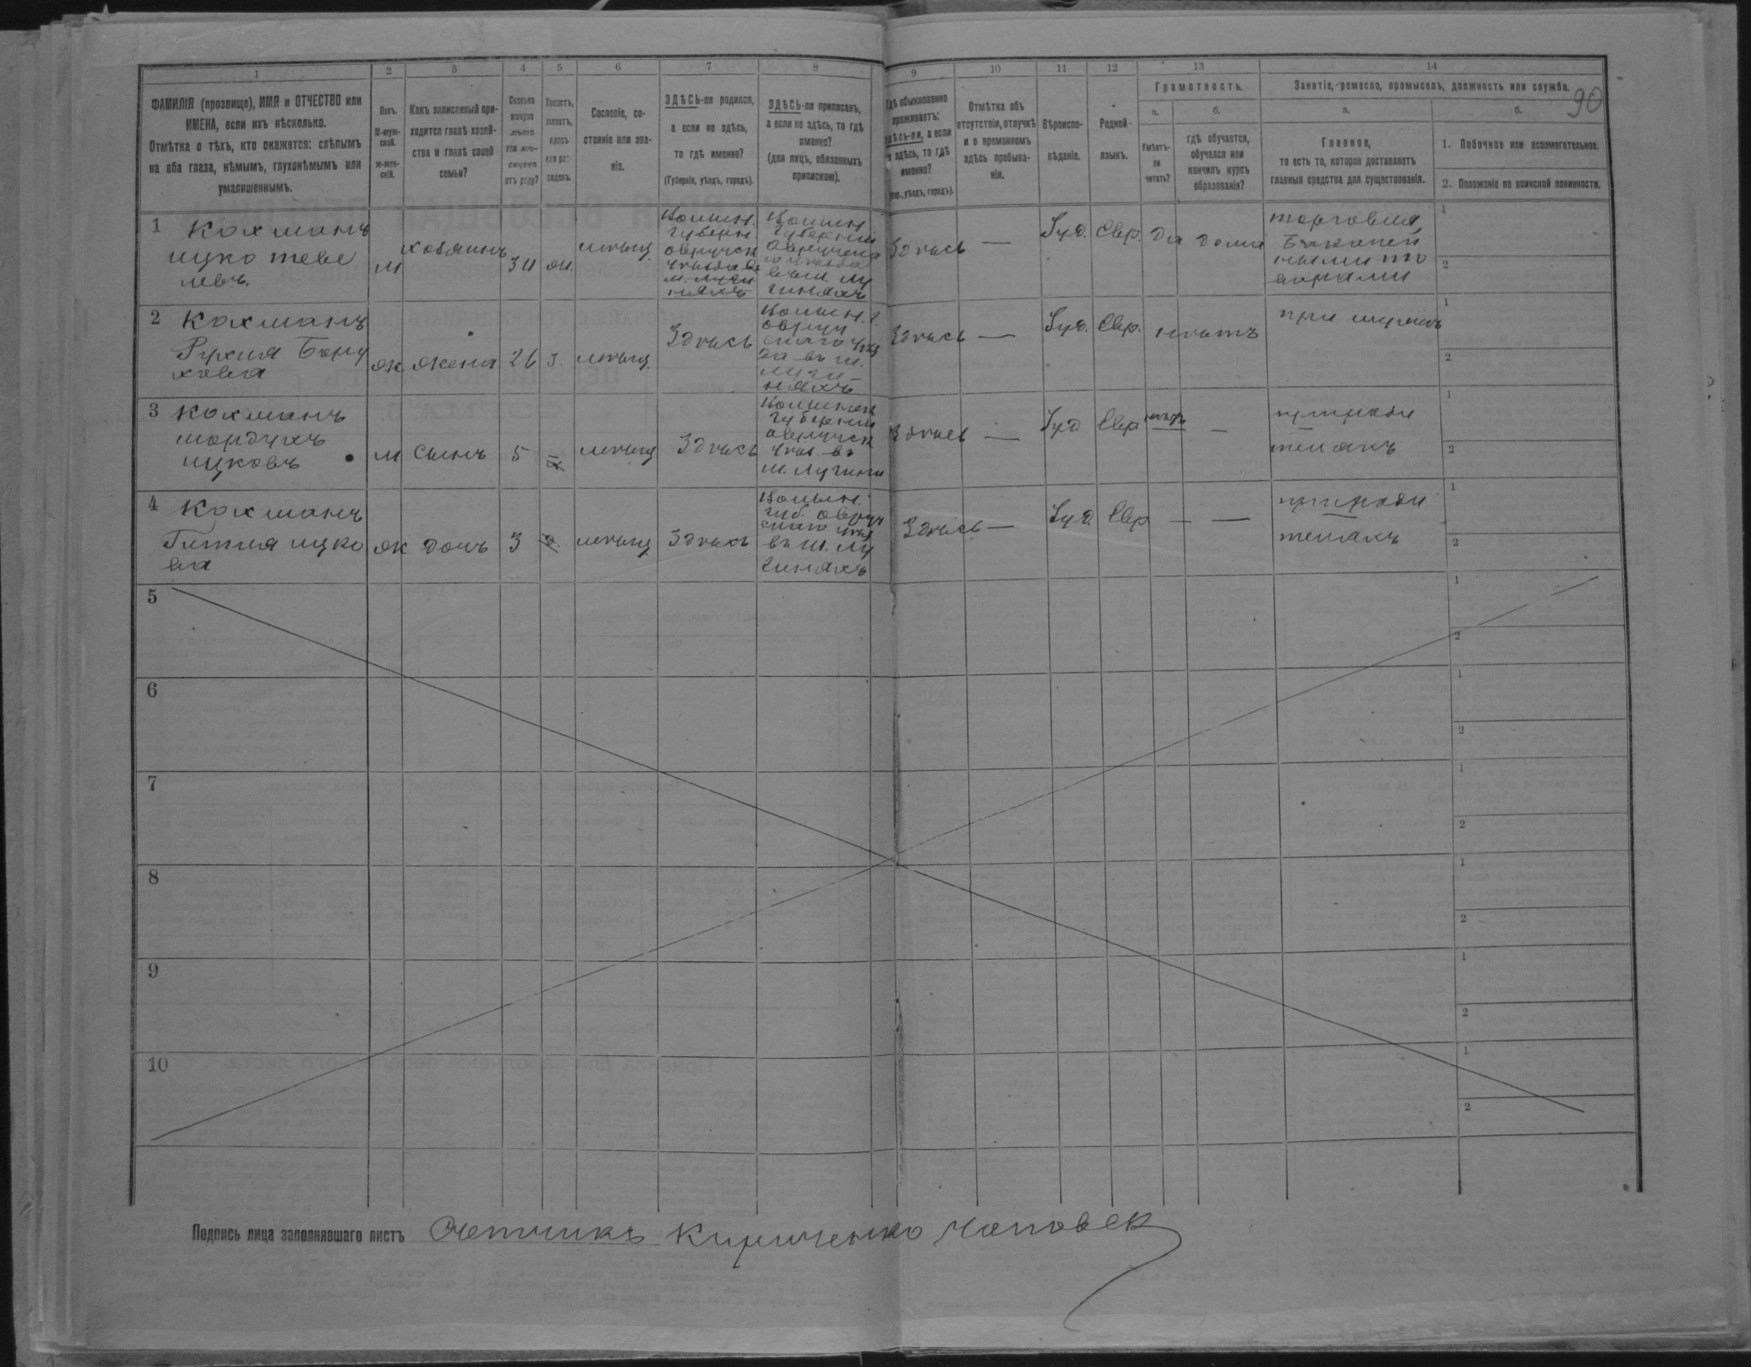 90
1
2
3
4
5
6
7
8
9
10
11
12
13
14
ФАМИЛІЯ (прозвище), ИМЯ и ОТЧЕСТВО или
ИМЕНА, если ихъ нѣсколько.
Отмѣтка о тѣхъ, кто окажется: слѣпымъ
на оба глаза, нѣмымъ, глухонѣмымъ или
умалишеннымъ.
Полъ.
М-муж-
ской.
ж-жен-
скій.
Какъ записанный при-
ходится главѣ хозяй-
ства и главѣ своей
семьи?
Сословіе, со-
стояніе или зва-
ніе.
ЗДѢСЬ-ли родился,
а если не здѣсь,
то гдѣ именно?
(Губернія, уѣздъ, городъ).
ЗДѢСЬ-ли приписанъ,
а если не здѣсь, то гдѣ
именно?
(для лицъ, обязанныхъ
припискою).
Гдѣ обыкновенно
проживаетъ:
здѣсь-ли, а если
не здѣсь, то гдѣ
именно?
Отмѣтка объ
отсутствіи, отлучкѣ
и о временномъ
здѣсь пребыва-
ніи.
Вѣроиспо-
вѣданіе.
Родной
языкъ.
Грамотность.
а.
б.
Умѣетъ-
ли
читать?
гдѣ обучается,
обучался или
кончилъ курсъ
образованія?
Занятіе, ремесло, промыселъ, должность или служба.
а.
б.
Главное,
то есть то, которое доставляетъ
главныя средства для существованія.
1. Побочное или вспомогательное.
2. Положеніе по воинской повинности.
1
Кохманъ
ицко теве
левъ.
м
хозяинъ
34
ж.
мѣщ
Волын.
Губерн
овручск
уѣзда въ
м. Луги
нахъ
Волын
Губерніи
уѣзда
въ м. Лу
гинахъ
Здѣсь
—
Іуд.
Евр.
да
дома
торговля
Бакалей
ными то
варами
1
2
2
Кохманъ
Рухля Бору
хова
ж
жена
26
з.
мѣщ
Здѣсь
Волын. г.
овруч
скаго уѣз
да въ м.
Луги-
нахъ
Здѣсь
—
Іуд.
Евр.
нѣтъ
при мужѣ
1
2
3
Кохманъ
мордухъ
ицковъ
м
сынъ
5
х
мѣщ
Здѣсь
Волынск
Губерніи
овручск
уѣз. въ
м. Лугины
Здѣсь
—
Іуд
Евр
нѣтъ
—
при роди
теляхъ
1
2
4
Кохманъ
Гитля ицко
ва
ж
дочь
3
мѣщ
Здѣсь
Волын.
губ. овруч
скаго уѣз
въ м. Лу
гинахъ
Здѣсь
—
Іуд
Евр
—
—
при роди
теляхъ
1
2
5
1
2
6
1
2
7
1
2
8
1
2
9
1
2
10
1
2
Подпись лица заполнявшаго листъ
Счетчикъ Кириченко